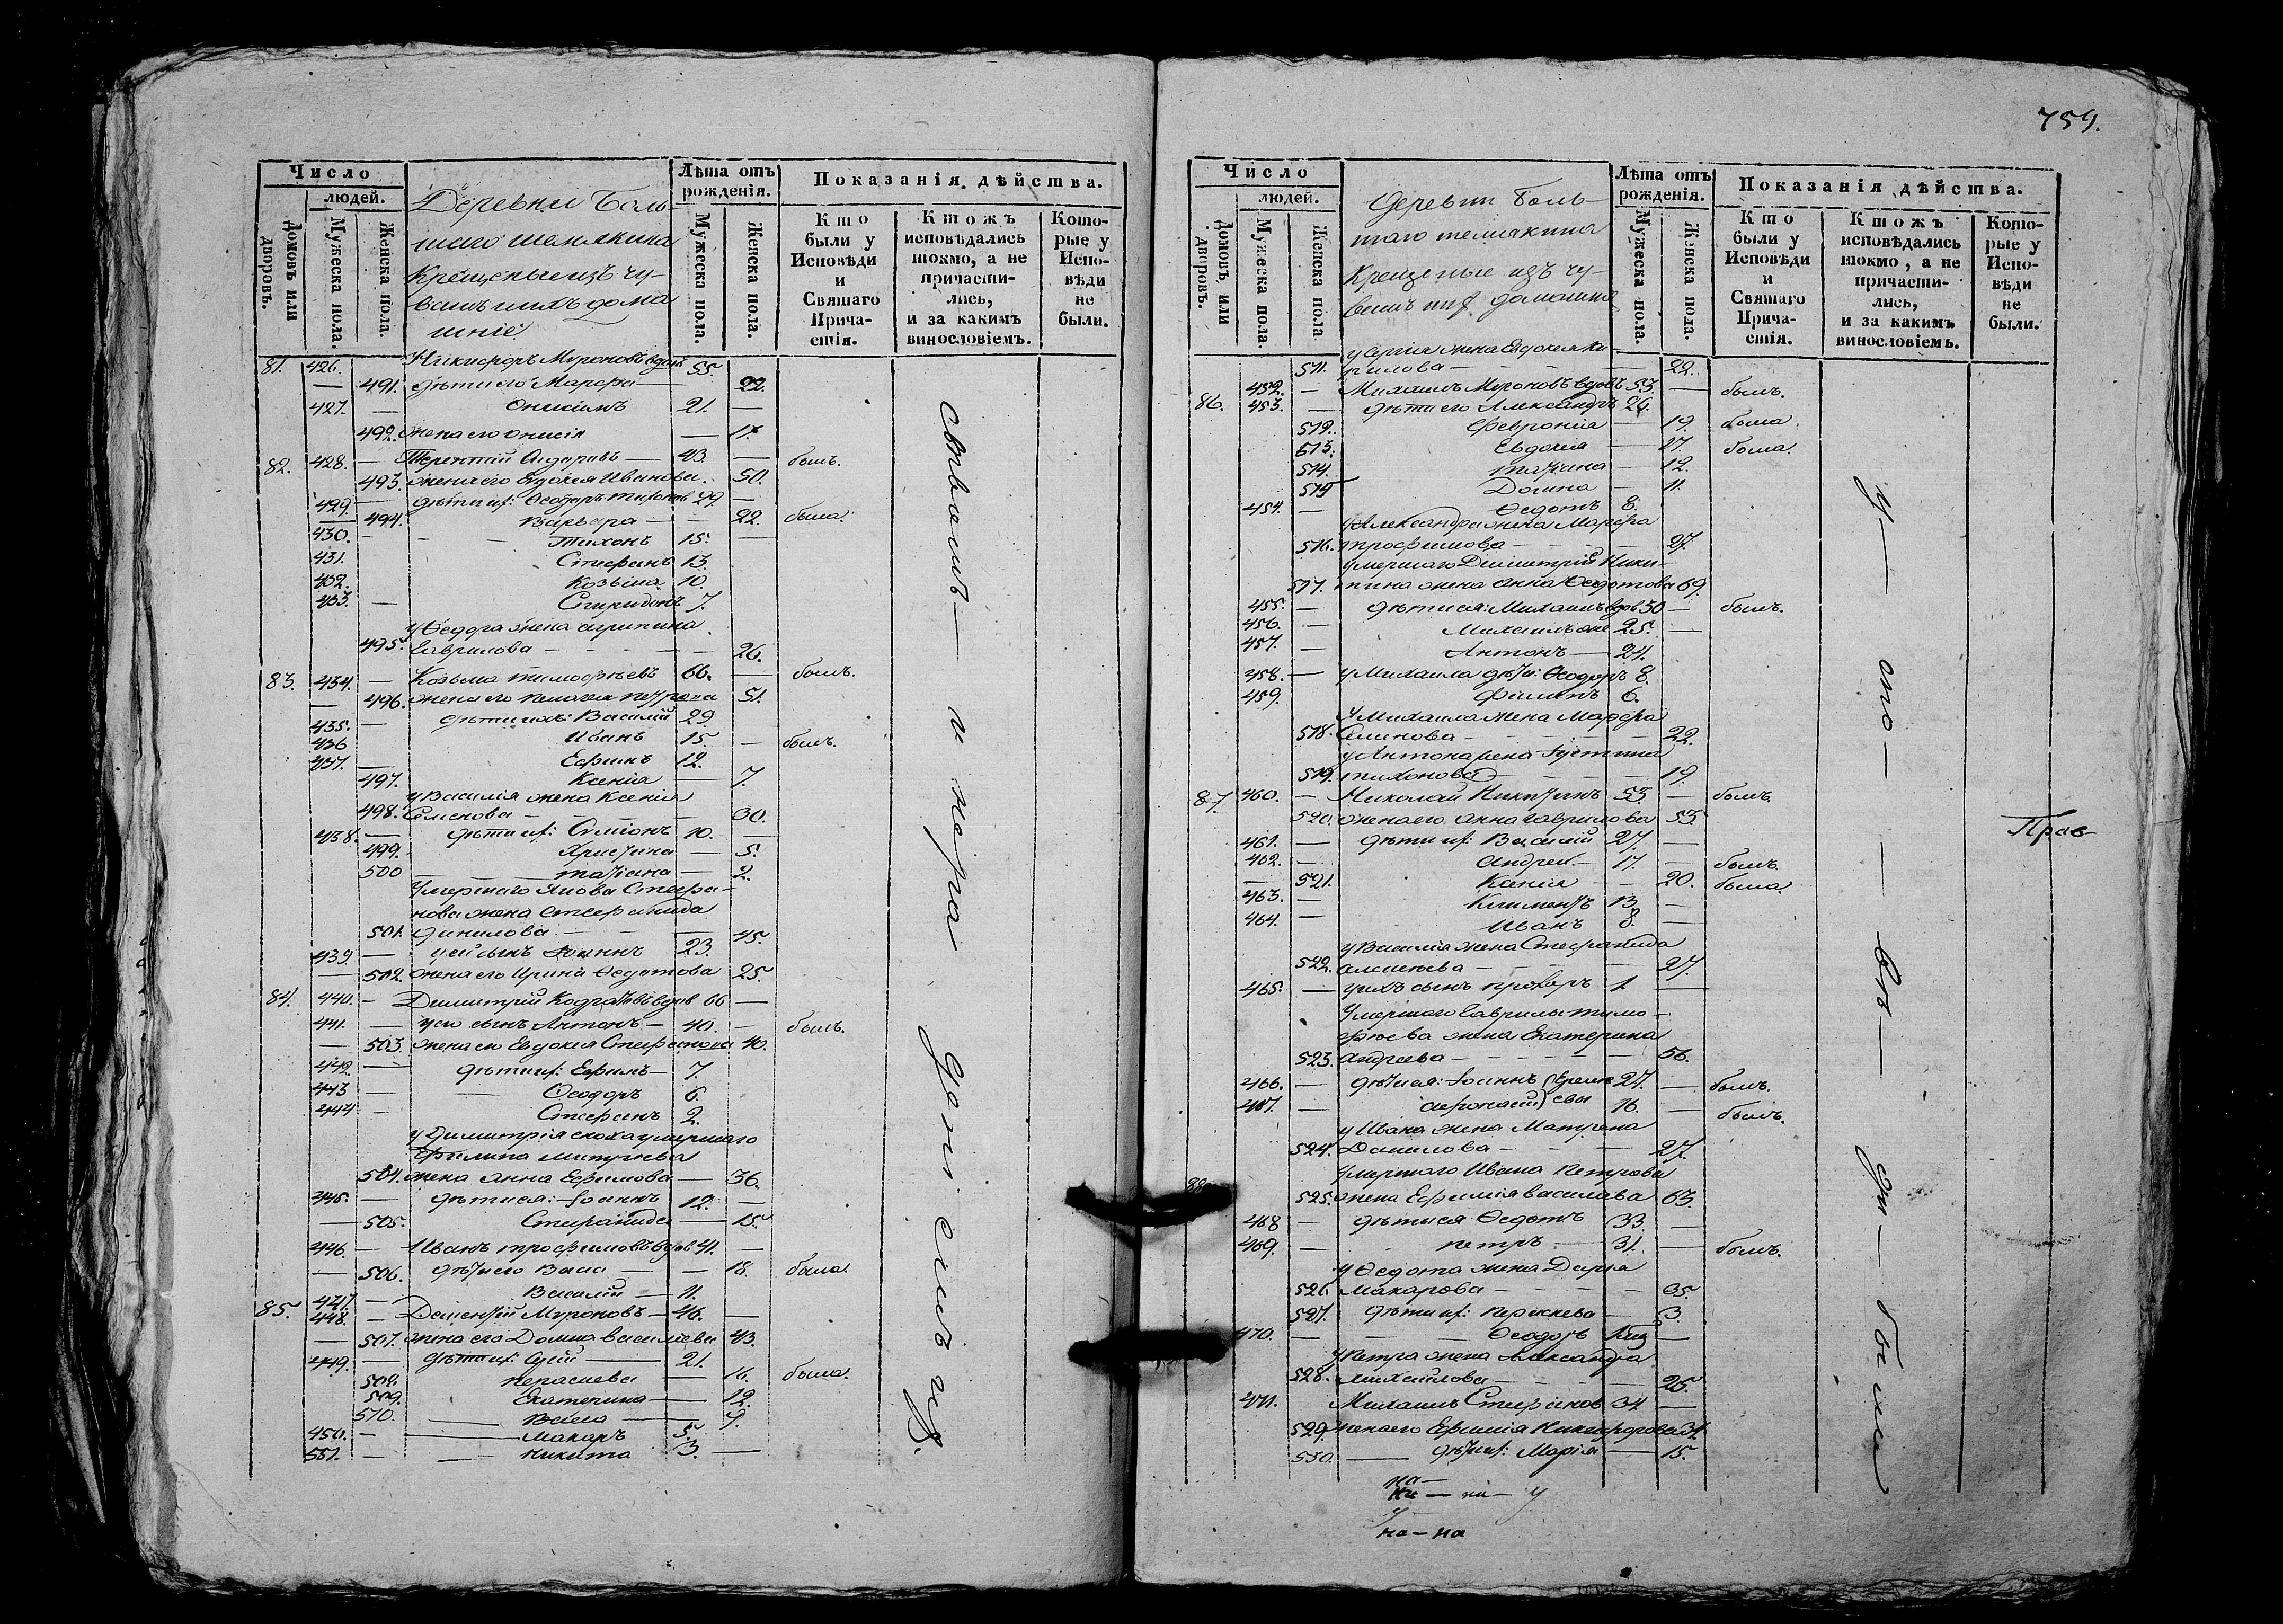 759.
Число
людей.
Домовъ или дворовъ.
Мужеска пола.
Женска пола.
Деревни Боль-
шаго Шемякина
Крещеные изъ чу-
вашъ ихъ дома
шніе:
Лѣта отъ рожденія.
Мужеска пола.
Женска пола.
Показанія дѣйства.
Кто были у Исповѣди и Святаго Прича-стія.
Ктожъ исповѣдались токмо, а не причасти-лись, и за какимъ винословіемъ.
Кото-рые у Испо-вѣди не были.
81. 426. Никифоръ Мироновъ вдовъ 55.
— 491. дѣти его Марфа — 22.
427. — Онисимъ 21. —
492. жена его Анисія —
82. 428. — Терентій Сидоровъ — 43. — былъ.
493. жена его Евдокея Иванова. 50.
429. — дѣти их: Ѳеодоръ 29. —
494. Варвара — — 22. была.
430. — — — Тихонъ 15. —
431. Стефанъ 13.
432. Козьма 10.
433. — Спиридонъ 7.
у Ѳедора жена Агрипина
495. Гаврилова — — — — 26.
83. 434. — Козьма Тимофѣевъ 66. — былъ.
— 496. жена его Пелагея Петрова 51.
435. — дѣти ихъ: Василій 29.
436 Иванъ 15 — былъ.
437. — Ефимъ 12.
497. Ксенія — 7.
у Василія жена Ксенія
498. Семенова — — — — 30.
438. — дѣти их: Симіонъ 10. —
499. Христина — 5.
500 — — Татіана — 2.
Умершаго Якова Стефа-
нова жена Стефанида
501. Данилова — — — 45.
439. — у ей сынъ Іоаннъ 23.
— 502. жена его Ирина Ѳедотова 25.
84. 440. — Димитрій Кодратовъ вдов 66 —
441. — у его сынъ Антонъ — 40. — былъ.
— 503. жена его Евдокея Стефанова 40.
442. — дѣти их: Ефимъ — 7.
443 — — Ѳеодоръ 6.
444 — Стефанъ 2.
у Димитрія сноха умершаго
Филипа
504. жена Анна Ефимова — 36.
445. — дѣти ея: Іоаннъ 12. —
— 505. Стефанида — 15.
446. — Иванъ Трофимовъ вдов. 41. —
— 506. дѣти его Васса — — 18. была.
447. — Василій — 11.
85. 448. — Дементій Мироновъ — 46. —
— 507. жена его Домна Василіева 43.
449. — дѣти их: 21.
508. Параскева — 16. была.
509. Екатерина — 12.
510. — Васса — 9.
450. — — Макаръ 5.
551. — — Никита 3. —
Число
людей.
Домовъ, или дворовъ.
Мужеска пола.
Женска пола
Деревни Боль-
шаго Шемякина
Крещеные изъ чу-
вашъ их домашніе
Лѣта отъ рожденія.
Мужеска пола.
Женска пола.
Показанія дѣйства.
Кто были у Исповѣди и Святаго Прича-стія.
Ктожъ исповѣдались токмо, а не причасти-лись, и за какимъ винословіемъ.
Кото-рые у Испо-вѣди не были.
у Сергія жена Евдокея Ки-
511. рилова — — — — 22.
452. — Михаилъ Мироновъ вдовъ 53. — былъ.
86. 453. — дѣти его Александръ 26.
512. Февронія — 19. была.
513. Евдокія — 17. была.
514. Татіана — 12.
515 Домна — 11.
454. — Ѳедотъ 8.
у Александра жена Марфа
516. Трофимова — — — — 27.
умершаго Димитрія Ники-
517. тина жена Анна Ѳедотова 69.
455. — дѣти ея: Михаилъ вдов 30 — былъ.
456. — Михаилъ же 25. —
457. — Антонъ — 24.
458. — у Михаила дѣти: Ѳеодоръ 8.
459. Филипъ 6.
у Михаила жена Марфа
518. Семенова — — — — 22.
у Антона жена Іустина
519. Тихонова — — — — 19.
87. 460. — Николай Никитинъ 53. — былъ.
520. жена его Анна Гаврилова 53.
461. — дѣти их: Василій 27. —
462. — Андрей — 17. — былъ.
— 521. Ксенія — — 20. была.
463. — Климентъ 13. —
464. — Иванъ 8. —
у Василія жена Стефанида
522. Алексѣева — — — — 27.
465. — у ихъ сынъ Прохоръ 1. —
Умершаго Гаврилы Тимо-
фѣева жена Екатерина
523. Андреева — — — — 56.
466. — дѣти ея: Іоаннъ 27. — былъ.
467. — Афонасій 16. — былъ.
у Ивана жена Матрена
524. Данилова — — — 27.
88. Умершаго Ивана Петрова
525. жена Ефимія Василіева 63.
468 — дѣти ея Ѳедотъ 33. —
469. — Петръ — 31. — былъ.
у Ѳедота жена Дарія
526 Макарова — — — — 35.
527. дѣти их: Параскева — 3.
470. — — — Ѳеодоръ —
у Петра жена Александра
528. Михайлова — — — — 25.
471. Михаилъ Стефановъ 34 —
529. жена его Ефимія Никифорова 34.
530. — дѣти их: Марія — 15.
на —
на — на — у
у
на — на
у — сто — въ — ди — были
Прав-